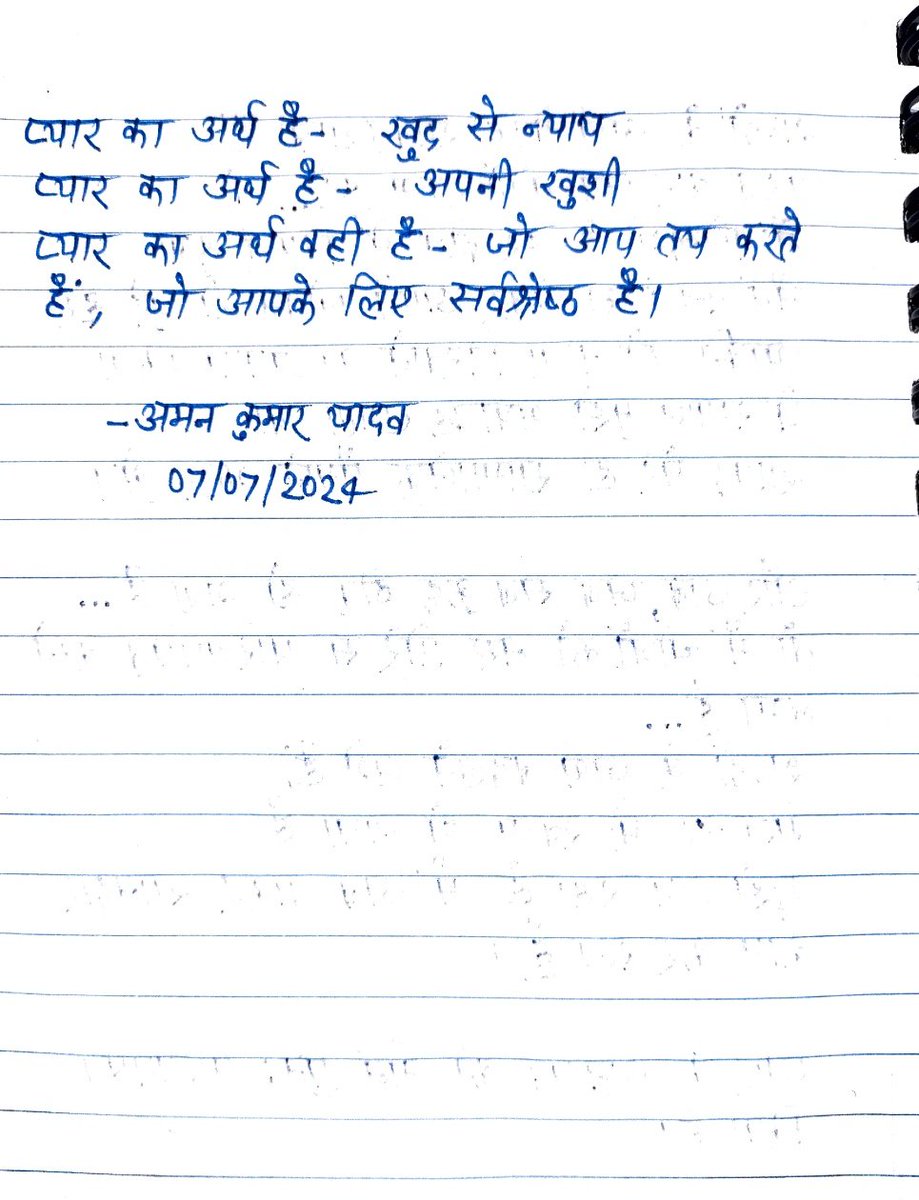 प्यार का अर्थ है- खुद से न्याय
प्यार का अर्थ है - अपनी खुशी
प्यार का अर्थ वही है - जो आप तय करते
हैं, जो आपके लिए सर्वश्रेष्ठ है।
- अमन कुमार यादव
07/07/2024